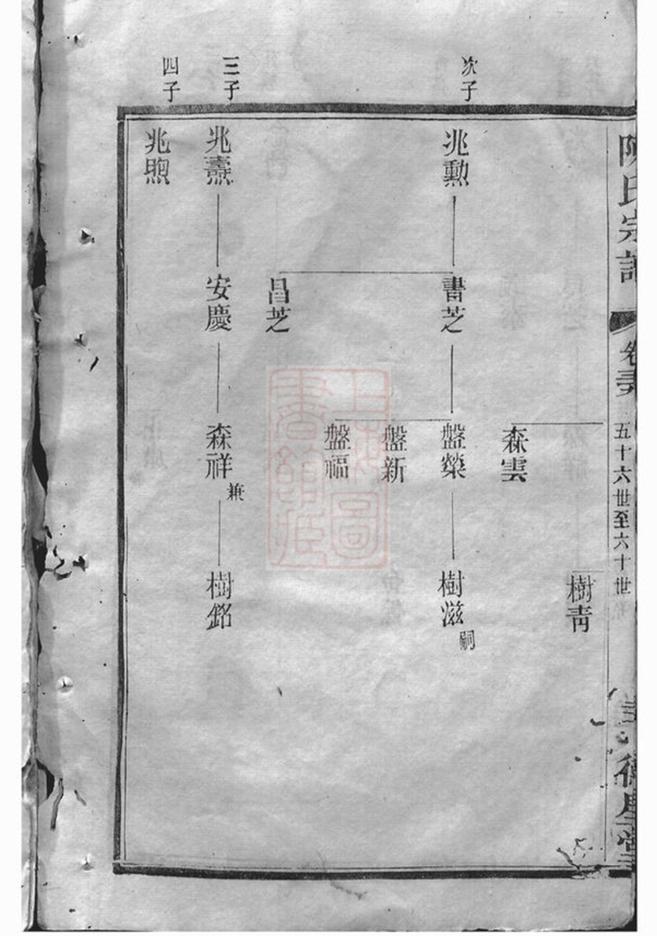 陳氏宗譜
五十六世至六十世
樹青
森雲
次子
兆勳
書芝
盤榮
樹滋 嗣
盤新
盤福
昌芝
三子
兆燾
安慶
森祥 兼
樹銘
四子
兆煦
上海圖書館藏